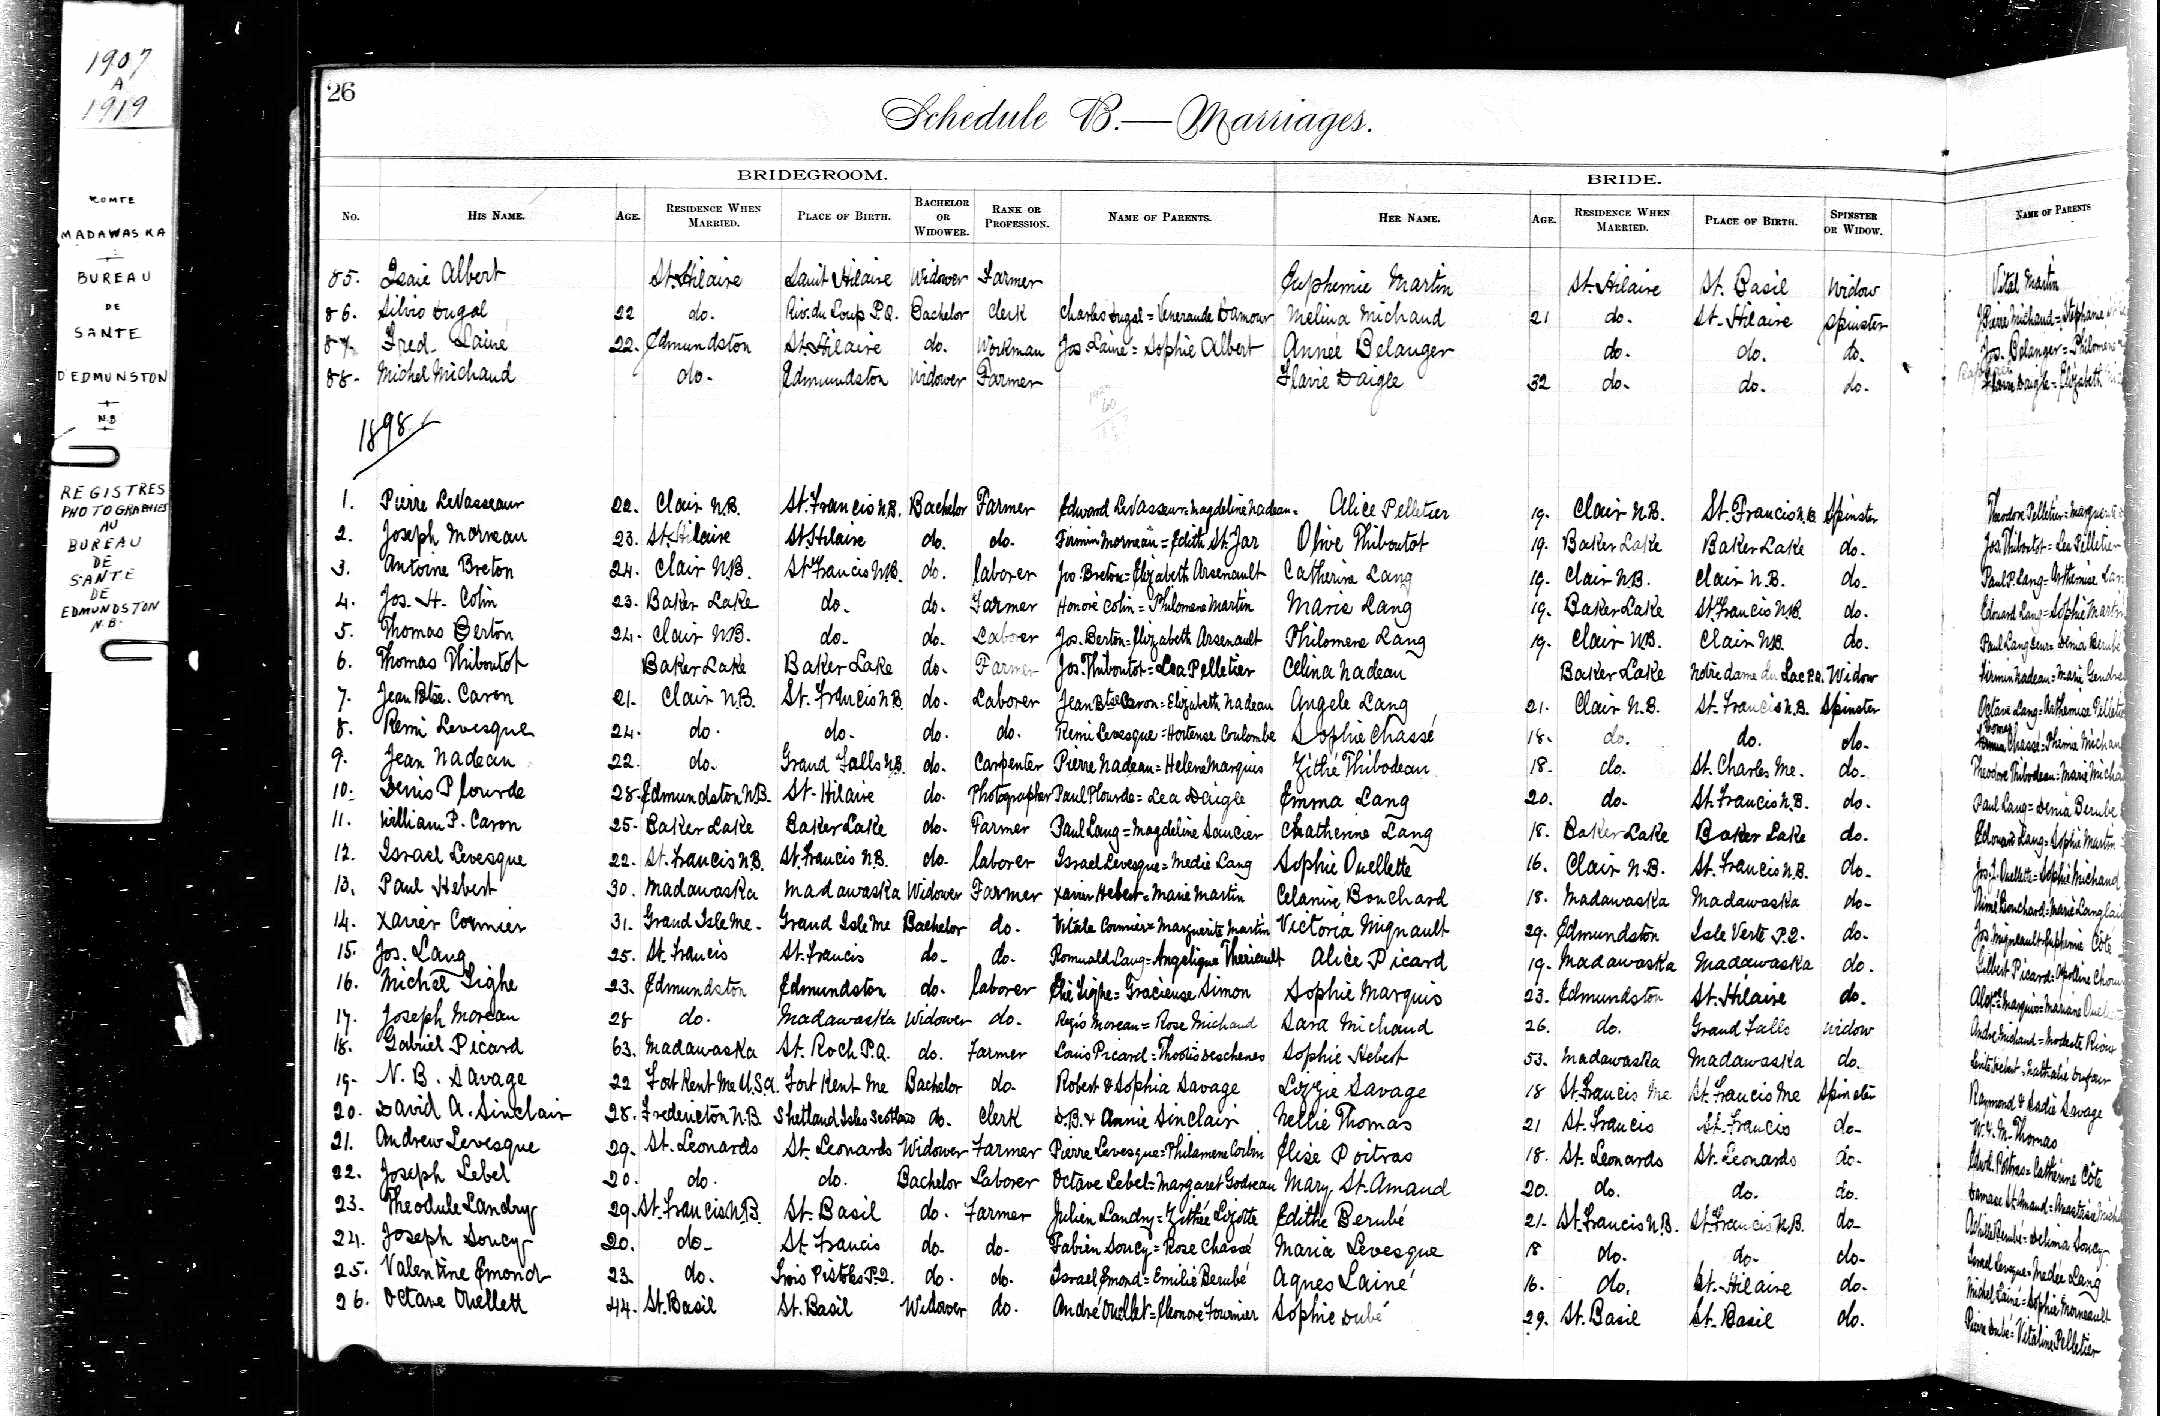 1907
A
1919
KOMTE
MADAWASKA
BUREAU
DE
SANTE
D EDMUNSTON
N.B
REGISTRES
PHOTOGRAPHIES
AU
BUREAU
DE
SANTE
DE
EDMUNDSTON
N.B.
26
Schedule B.—Marriages.
BRIDEGROOM. BRIDE.
No. His Name. Age. Residence When Married. Place of Birth. Bachelor or Widower. Rank or Profession. Name of Parents. Her Name. Age. Residence When Married. Place of Birth. Spinster or Widow. Name of Parents
85. Isaie Albert St. Hilaire Saint Hilaire Widower Farmer Euphemie Martin St. Hilaire St. Basil Widow Vital Martin
86. Silvio Dugal 22 do. Riv. du Loup P.Q. Bachelor Clerk Charles Dugal = Venerande Damour Melina Michaud 21 do. St. Hilaire Spinster Pierre Michaud = Stephanie
87. Fred. Lainé 22. Edmundston St. Hilaire do. Workman Jos. Lainé = Sophie Albert Année Belanger do. do. do. Jos. Belanger = Philomene
88. Michel Michaud do. Edmundston Widower Farmer Flavie Daigle 32 do. do. do. Daigle = Elizabeth
1898
1. Pierre LeVasseur 22. Clair N.B. St. Francis N.B. Bachelor Farmer Edward LeVasseur = Magdeline Nadeau. Alice Pelletier 19. Clair N.B. St. Francis N.B. Spinster Theodore Pelletier =
2. Joseph Morneau 23. St. Hilaire St. Hilaire do. do. Firmin Morneau = Edith St. Jar Olive Thiboutot 19. Baker Lake Baker Lake do. Jos. Thiboutot = Lea Pelletier
3. Antoine Breton 24. Clair N.B. St Francis N.B. do. laborer Jos. Breton = Elizabeth Arsenault Catherine Lang 19. Clair N.B. Clair N.B. do. Paul P. Lang = Arthemise
4. Jos. H. Colin 23. Baker Lake do. do. Farmer Honoré Colin = Philomene Martin Marie Lang 19. Baker Lake St. Francis N.B. do. Edouard Lang = Sophie Martin
5. Thomas Berton 24. Clair N.B. do. do. Laborer Jos. Berton = Elizabeth Arsenault Philomene Lang 19. Clair N.B. Clair N.B. do. Paul Lang = Denia Berubé
6. Thomas Thiboutot Baker Lake Baker Lake do. Farmer Jos. Thiboutot = Lea Pelletier Celina Nadeau Baker Lake Notre dame du Lac P.Q. Widow Firmin Nadeau = Marie
7. Jean Btse. Caron 21. Clair N.B. St. Francis N.B. do. Laborer Jean Btse Caron = Elizabeth Nadeau Angele Lang 21. Clair N.B. St. Francis N.B. Spinster Octave Lang = Arthemise
8. Remi Levesque 24. do. do. do. do. Remi Levesque = Hortense Coulombe Sophie Chassé 18. do. do. do. Chassé = Phemie
9. Jean Nadeau 22. do. Grand Falls N.B. do. Carpenter Pierre Nadeau = Helene Marquis Zithé Thibodeau 18. do. St. Charles Me. do. Theodore Thibodeau = Marie
10. Denis Plourde 28. Edmundston N.B. St. Hilaire do. Photographer Paul Plourde = Lea Daigle Emma Lang 20. do. St. Francis N.B. do. Paul Lang = Denia Berube
11. William P. Caron 25. Baker Lake Baker Lake do. Farmer Paul Lang = Magdeline Saucier Chatherine Lang 18. Baker Lake Baker Lake do. Edouard Lang = Sophie Martin
12. Israel Levesque 22. St. Francis N.B. St. Francis N.B. do. laborer Israel Levesque = Medie Lang Sophie Ouellette 16. Clair N.B. St. Francis N.B. do. Ouellette = Sophie Michaud
13. Paul Hebert 30. Madawaska Madawaska Widower Farmer Xavier Hebert = Marie Martin Celanire Bouchard 18. Madawaska Madawaska do. Aimé Bouchard = Marie
14. Xavier Cormier 31. Grand Isle Me. Grand Isle Me Bachelor do. Vitale Cormier = Marguerite Martin Victoria Mignault 29. Edmundston Isle Verte P.Q. do. Côté
15. Jos. Lang 25. St. Francis St. Francis do. do. Romuald Lang = Angelique Theriault Alice Picard 19. Madawaska Madawaska do. Gilbert Picard =
16. Michel Sighe 23. Edmundston Edmundston do. laborer Elie Sighe = Gracieuse Simon Sophie Marquis 23. Edmundston St. Hilaire do. Marquis = Mariane
17. Joseph Moreau 28 do. Madawaska Widower do. Regis Moreau = Rose Michaud Sara Michaud 26. do. Grand Falls widow André Michaud = Modeste
18. Gabriel Picard 63. Madawaska St. Roch P.Q. do. Farmer Louis Picard = Deschenes Sophie Hebert 53. Madawaska Madawaska do. Hebert = Nathalie Dufour
19. N. B. Savage 22 Fort Kent Me U.S.A. Fort Kent Me Bachelor do. Robert & Sophia Savage Lizzie Savage 18 St. Francis Me St. Francis Me Spinster Raymond & Sadie Savage
20. David A. Sinclair 28. Fredericton N.B. Shetland Isles Scotland do. Clerk D.B. & Annie Sinclair Nellie Thomas 21 St. Francis St. Francis do. W. & M. Thomas
21. Andrew Levesque 29. St. Leonards St. Leonards Widower Farmer Pierre Levesque = Philamene Corbin Elise Poitras 18. St. Leonards St. Leonards do. Edwd. Poitras = Catherine Côte
22. Joseph Lebel 20. do. do. Bachelor Laborer Octave Lebel = Margaret Godreau Mary St. Amand 20. do. do. do. Damase St. Amand =
23. Theodule Landry 29. St. Francis N.B. St. Basil do. Farmer Julien Landry = Zithée Lizotte Edithe Berubé 21. St. Francis N.B. St. Francis N.B. do. Berubé = Delima Soucy
24. Joseph Soucy 20. do. St. Francis do. do. Fabien Soucy = Rose Chassé Maria Levesque 18 do. do. do. Israel Levesque = Medée Lang
25. Valentine Emond 23 do. Trois Pistoles P.Q. do. do. Israel Emond = Emilie Berubé Agnes Lainé 16. do. St. Hilaire do. Michel Lainé = Sophie Morneault
26. Octave Ouellett 44. St. Basil St. Basil Widower do. André Ouellet = Eleonore Fournier Sophie Dubé 29. St. Basil St. Basil do. Pierre Dubé = Vitaline Pelletier